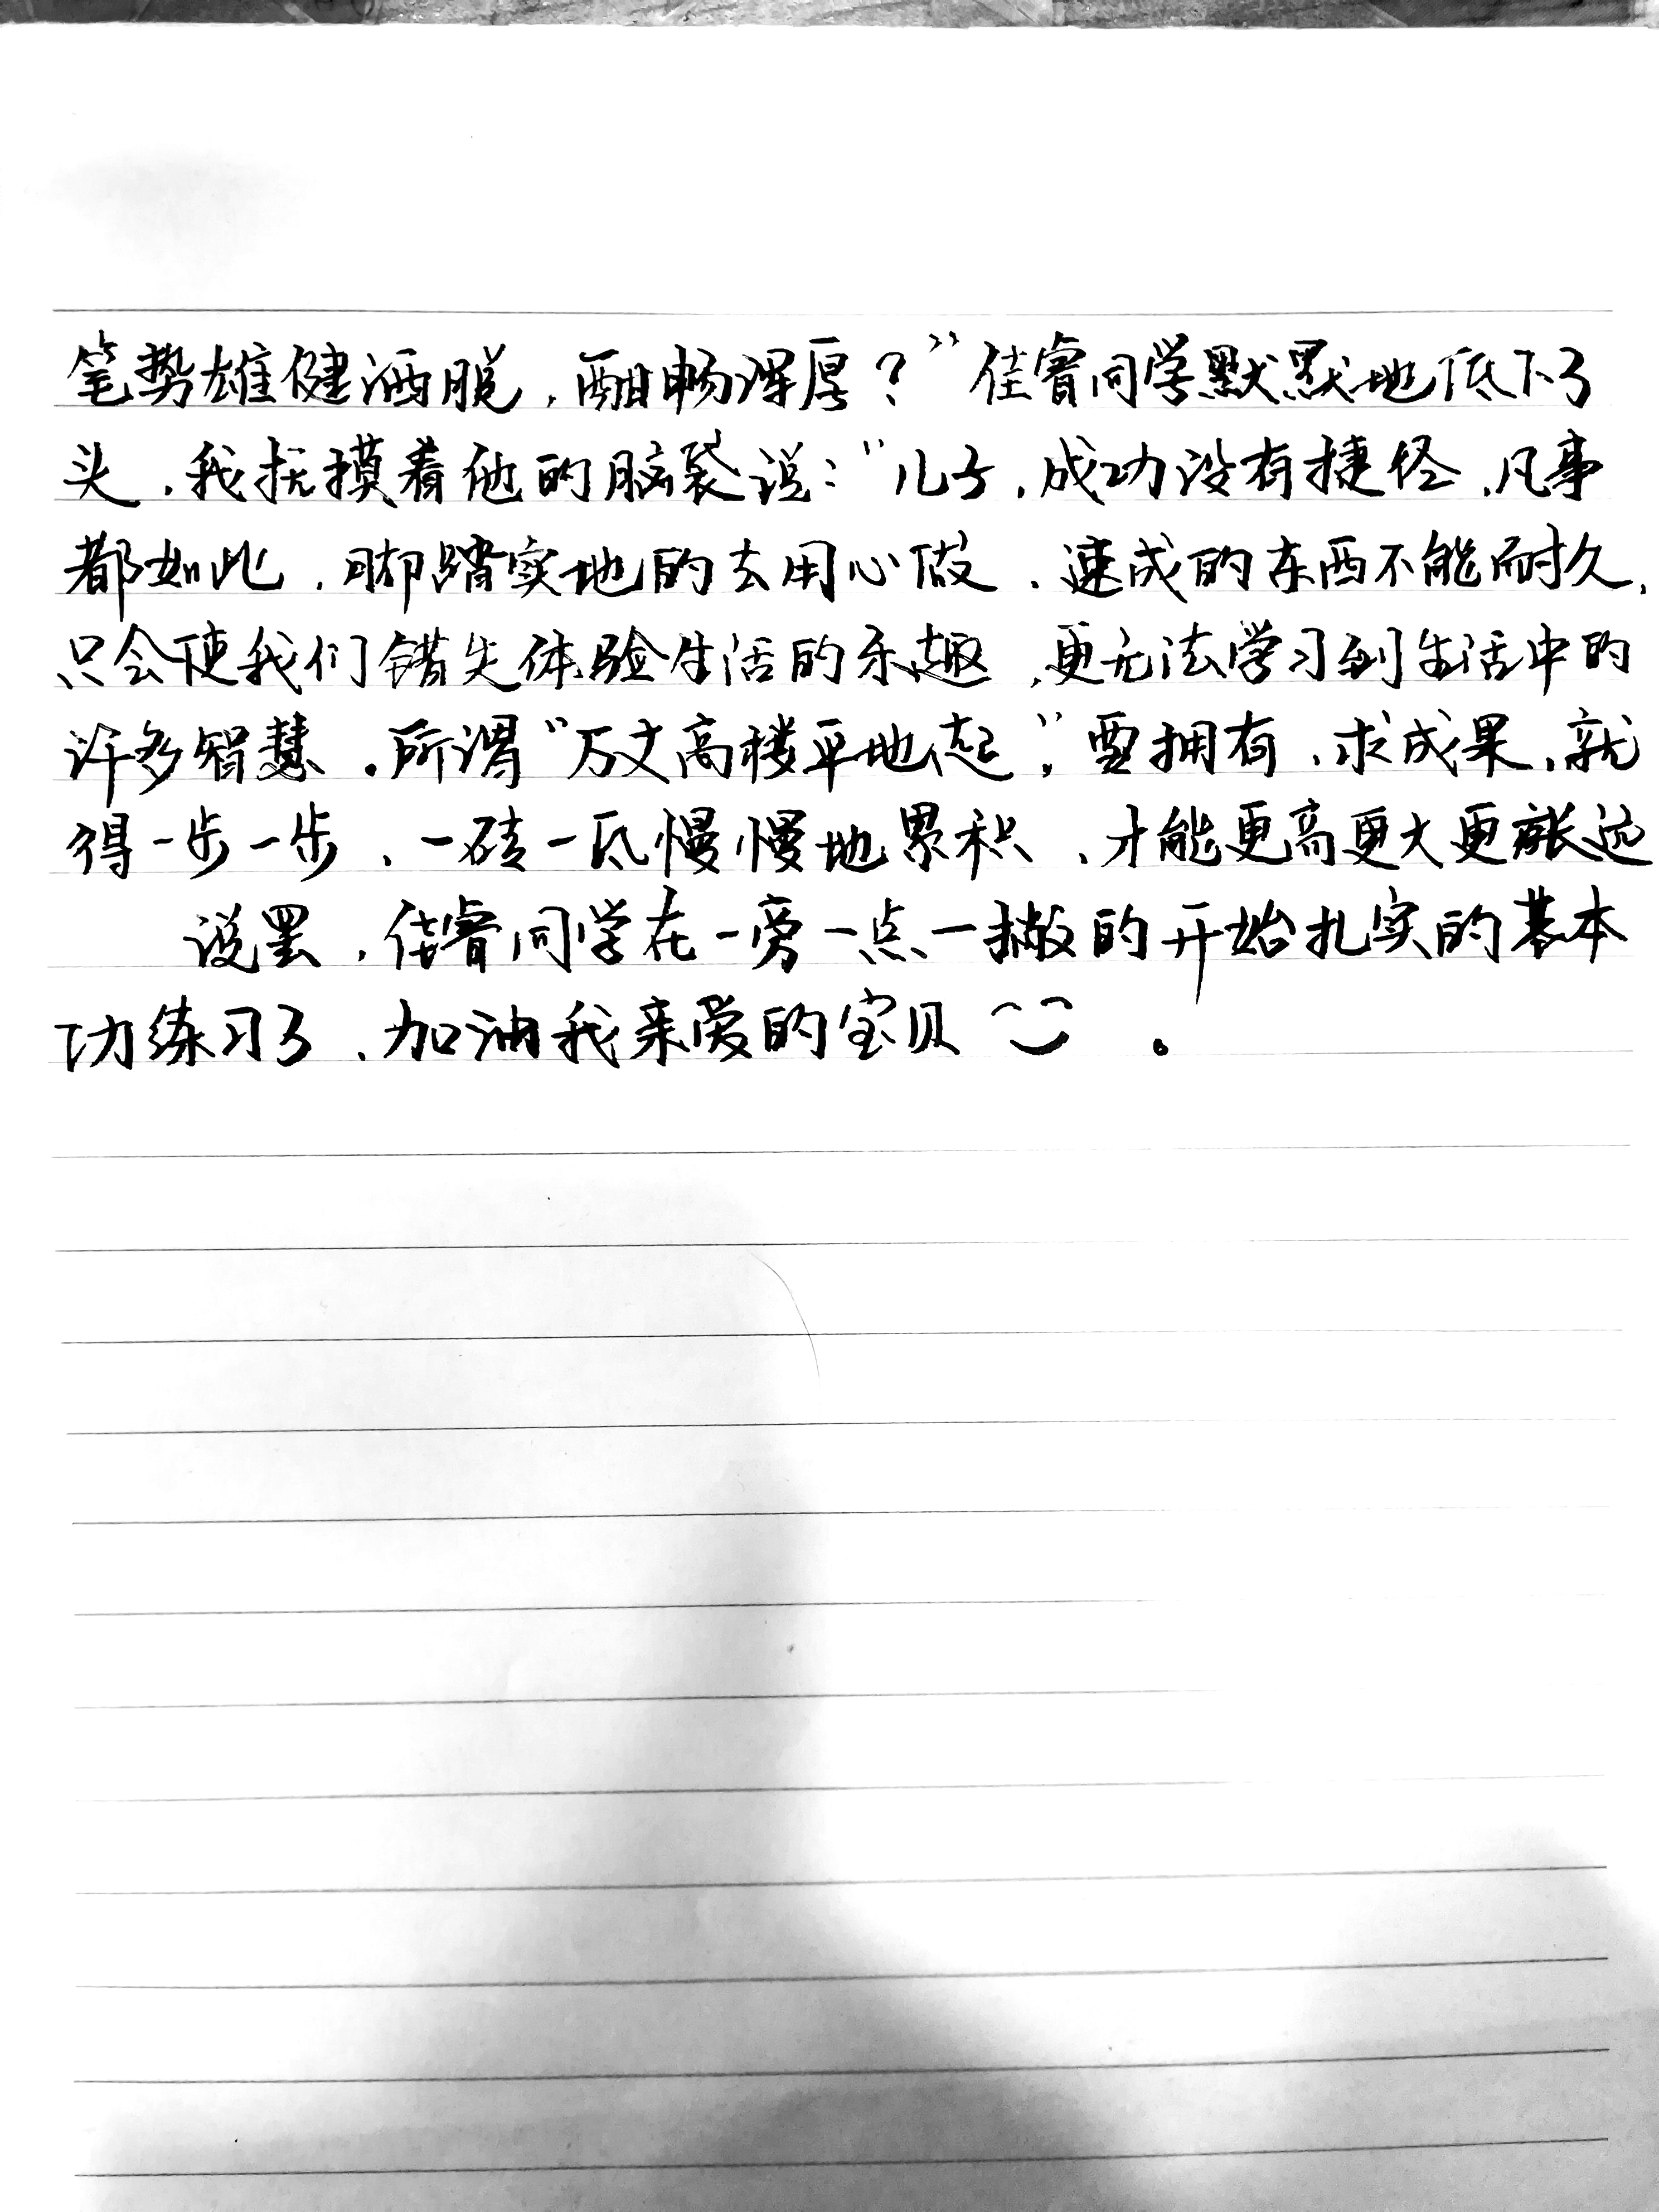 笔势雄健洒脱，酣畅浑厚？”佳睿同学默默地低下了
头，我抚摸着他的脑袋说：“儿子，成功没有捷径，凡事
都如此，脚踏实地的去用心做，速成的东西不能耐久，
只会使我们错失体验生活的乐趣，更无法学习到生活中的
许多智慧。所谓“万丈高楼平地起”，要拥有，求成果，就
得一步一步，一砖一瓦慢慢地累积，才能更高更大更远
说罢，佳睿同学在一旁一点一撇的开始扎实的基本
功练习了，加油我亲爱的宝贝。